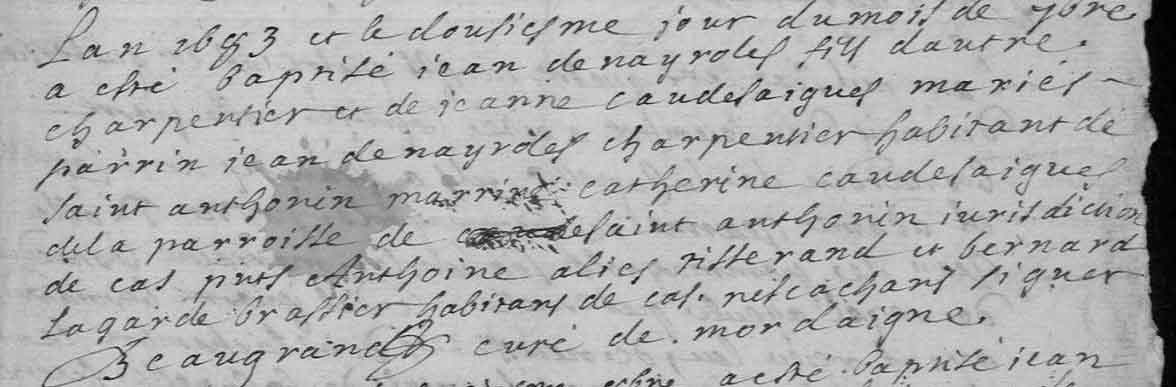 Lan 1693 et le dousiesme jour du mois de 7bre
a esté baptisé jean denayroles fils dautre
charpentier et de jeanne caudesaigues mariés
parrin jean denayroles charpentier habitant de
saint anthonin marrine catherine caudesaigues
dela parroisse de desaint anthonin jurisdiction
de cas pnts Anthoine alies tisserand et bernard
lagarde brassier habitans de cas. ne scachans signer
Beaugrand curé de mordaigne.
acsté baptisé jean